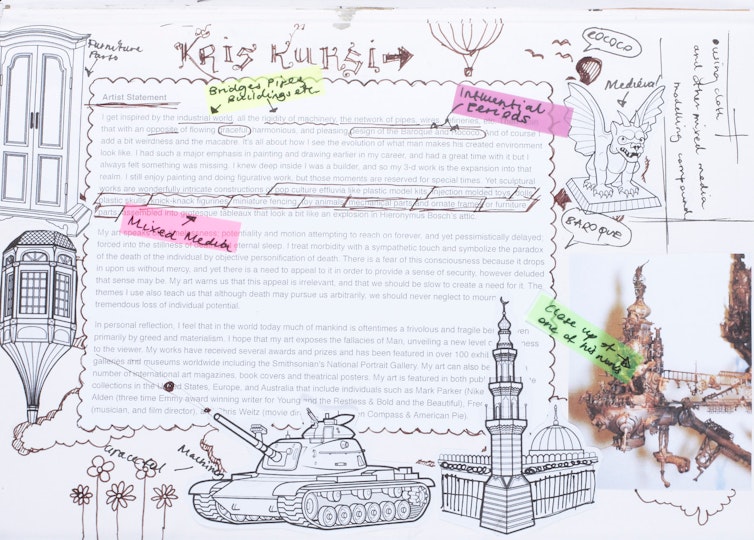 KRIS KUKSI
Furniture
Parts
Bridges, Pipes,
Buildings etc
Influential
Periods
ROCOCO
Medieval
and other mixed media
modelling compound
Artist Statement
I get inspired by the industrial world, all the rigidity of machinery, the network of pipes, wires, refineries,
that with an opposite of flowing graceful, harmonious, and pleasing design of the Baroque and Rococo. And of course I
add a bit weirdness and the macabre. It's all about how I see the evolution of what man makes his created environment
look like. I had such a major emphasis in painting and drawing earlier in my career, and had a great time with it but I
always felt something was missing. I knew deep inside I was a builder, and so my 3-d work is the expansion into that
realm. I still enjoy painting and doing figurative work, but those moments are reserved for special times. Yet sculptural
works are wonderfully intricate constructions of pop culture effluvia like plastic model kits, injection molded toys,
plastic skulls, knick-knack figurines, miniature fencing, toy animals, mechanical parts and ornate frames or furniture
parts assembled into grotesque tableaux that look a bit like an explosion in Hieronymus Bosch's attic.
Mixed Media
BAROQUE
My art potentiality and motion attempting to reach on forever, and yet pessimistically delayed;
forced into the stillness of eternal sleep. I treat morbidity with a sympathetic touch and symbolize the paradox
of the death of the individual by objective personification of death. There is a fear of this consciousness because it drops
in upon us without mercy, and yet there is a need to appeal to it in order to provide a sense of security, however deluded
that sense may be. My art warns us that this appeal is irrelevant, and that we should be slow to create a need for it. The
themes I use also teach us that although death may pursue us arbitrarily, we should never neglect to mourn
tremendous loss of individual potential.
Close up of
one of his works
In personal reflection, I feel that in the world today much of mankind is oftentimes a frivolous and fragile being
primarily by greed and materialism. I hope that my art exposes the fallacies of Man, unveiling a new level
to the viewer. My works have received several awards and prizes and has been featured in over 100 exhi
galleries and museums worldwide including the Smithsonian's National Portrait Gallery. My art can also be
number of international art magazines, book covers and theatrical posters. My art is featured in both publ
collections in the United States, Europe, and Australia that include individuals such as Mark Parker (Nike
Alden (three time Emmy award winning writer for Young and the Restless & Bold and the Beautiful), Fre
(musician, and film director), and Chris Weitz (movie dir Compass & American Pie).
Graceful
Machines